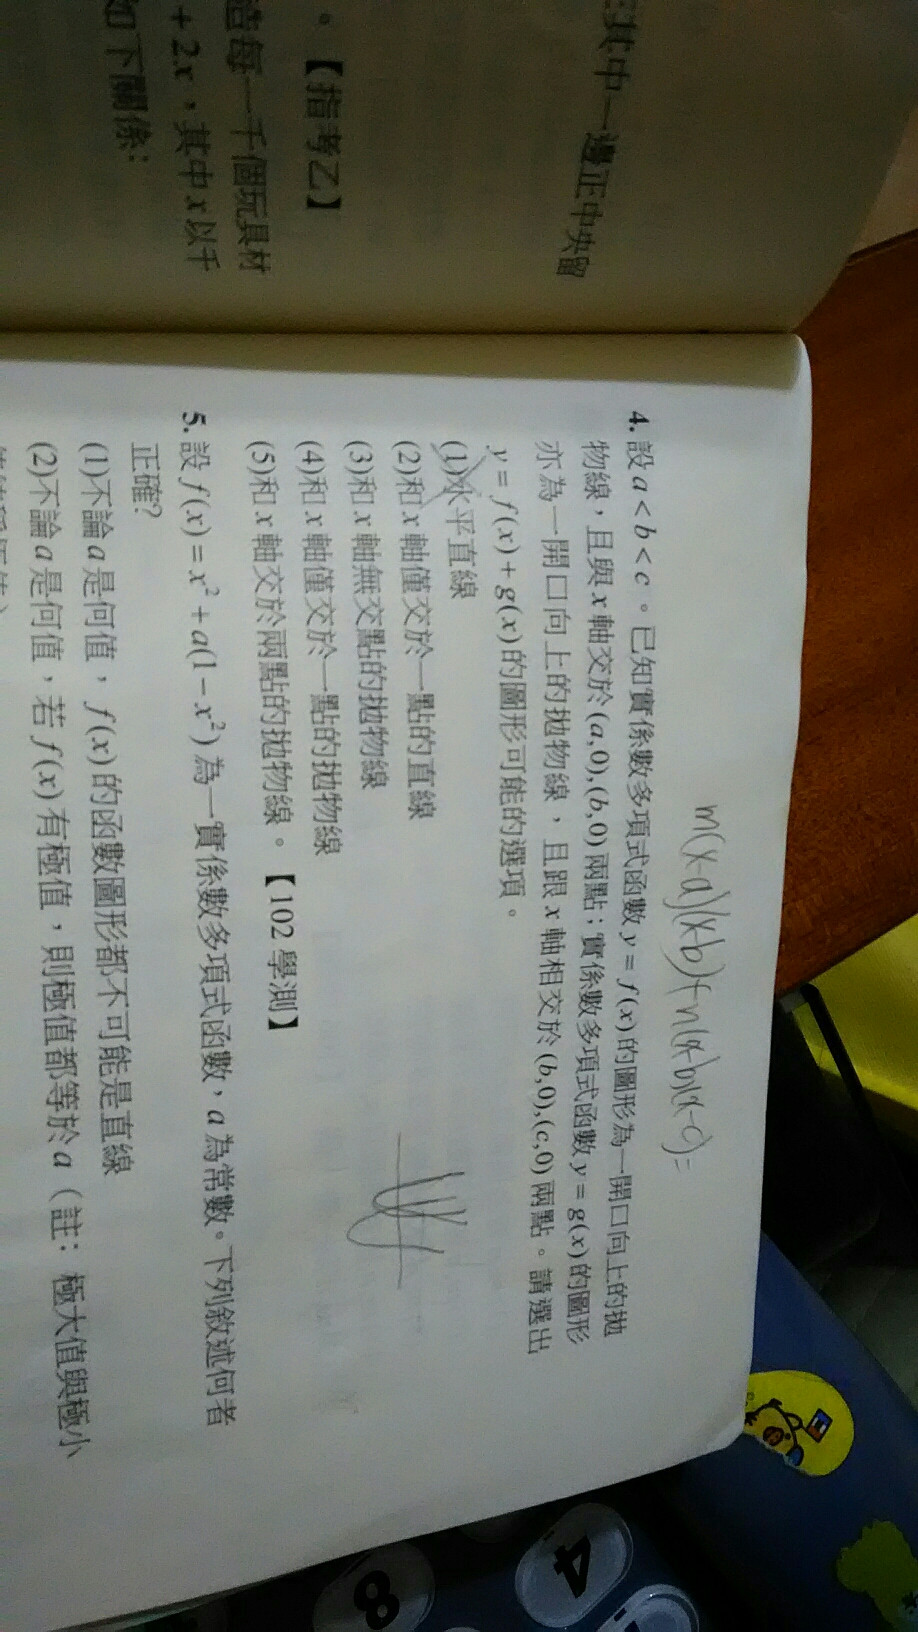 在其中一邊正中央留
。【指考乙】
造每一千個玩具材
+ 2x，其中 x 以千
如下關係：
m(x-a)(x-b)+n(x-b)(x-c)=
4. 設 a < b < c 。已知實係數多項式函數 y = f(x) 的圖形為一開口向上的拋
物線，且與 x 軸交於 (a,0),(b,0) 兩點；實係數多項式函數 y = g(x) 的圖形
亦為一開口向上的拋物線，且跟 x 軸相交於 (b,0),(c,0) 兩點。請選出
y = f(x) + g(x) 的圖形可能的選項。
(1)水平直線
(2)和 x 軸僅交於一點的直線
(3)和 x 軸無交點的拋物線
(4)和 x 軸僅交於一點的拋物線
(5)和 x 軸交於兩點的拋物線。【102 學測】
5. 設 f(x) = x² + a(1 − x²) 為一實係數多項式函數，a 為常數。下列敘述何者
正確？
(1)不論 a 是何值，f(x) 的函數圖形都不可能是直線
(2)不論 a 是何值，若 f(x) 有極值，則極值都等於 a（註：極大值與極小
4
8